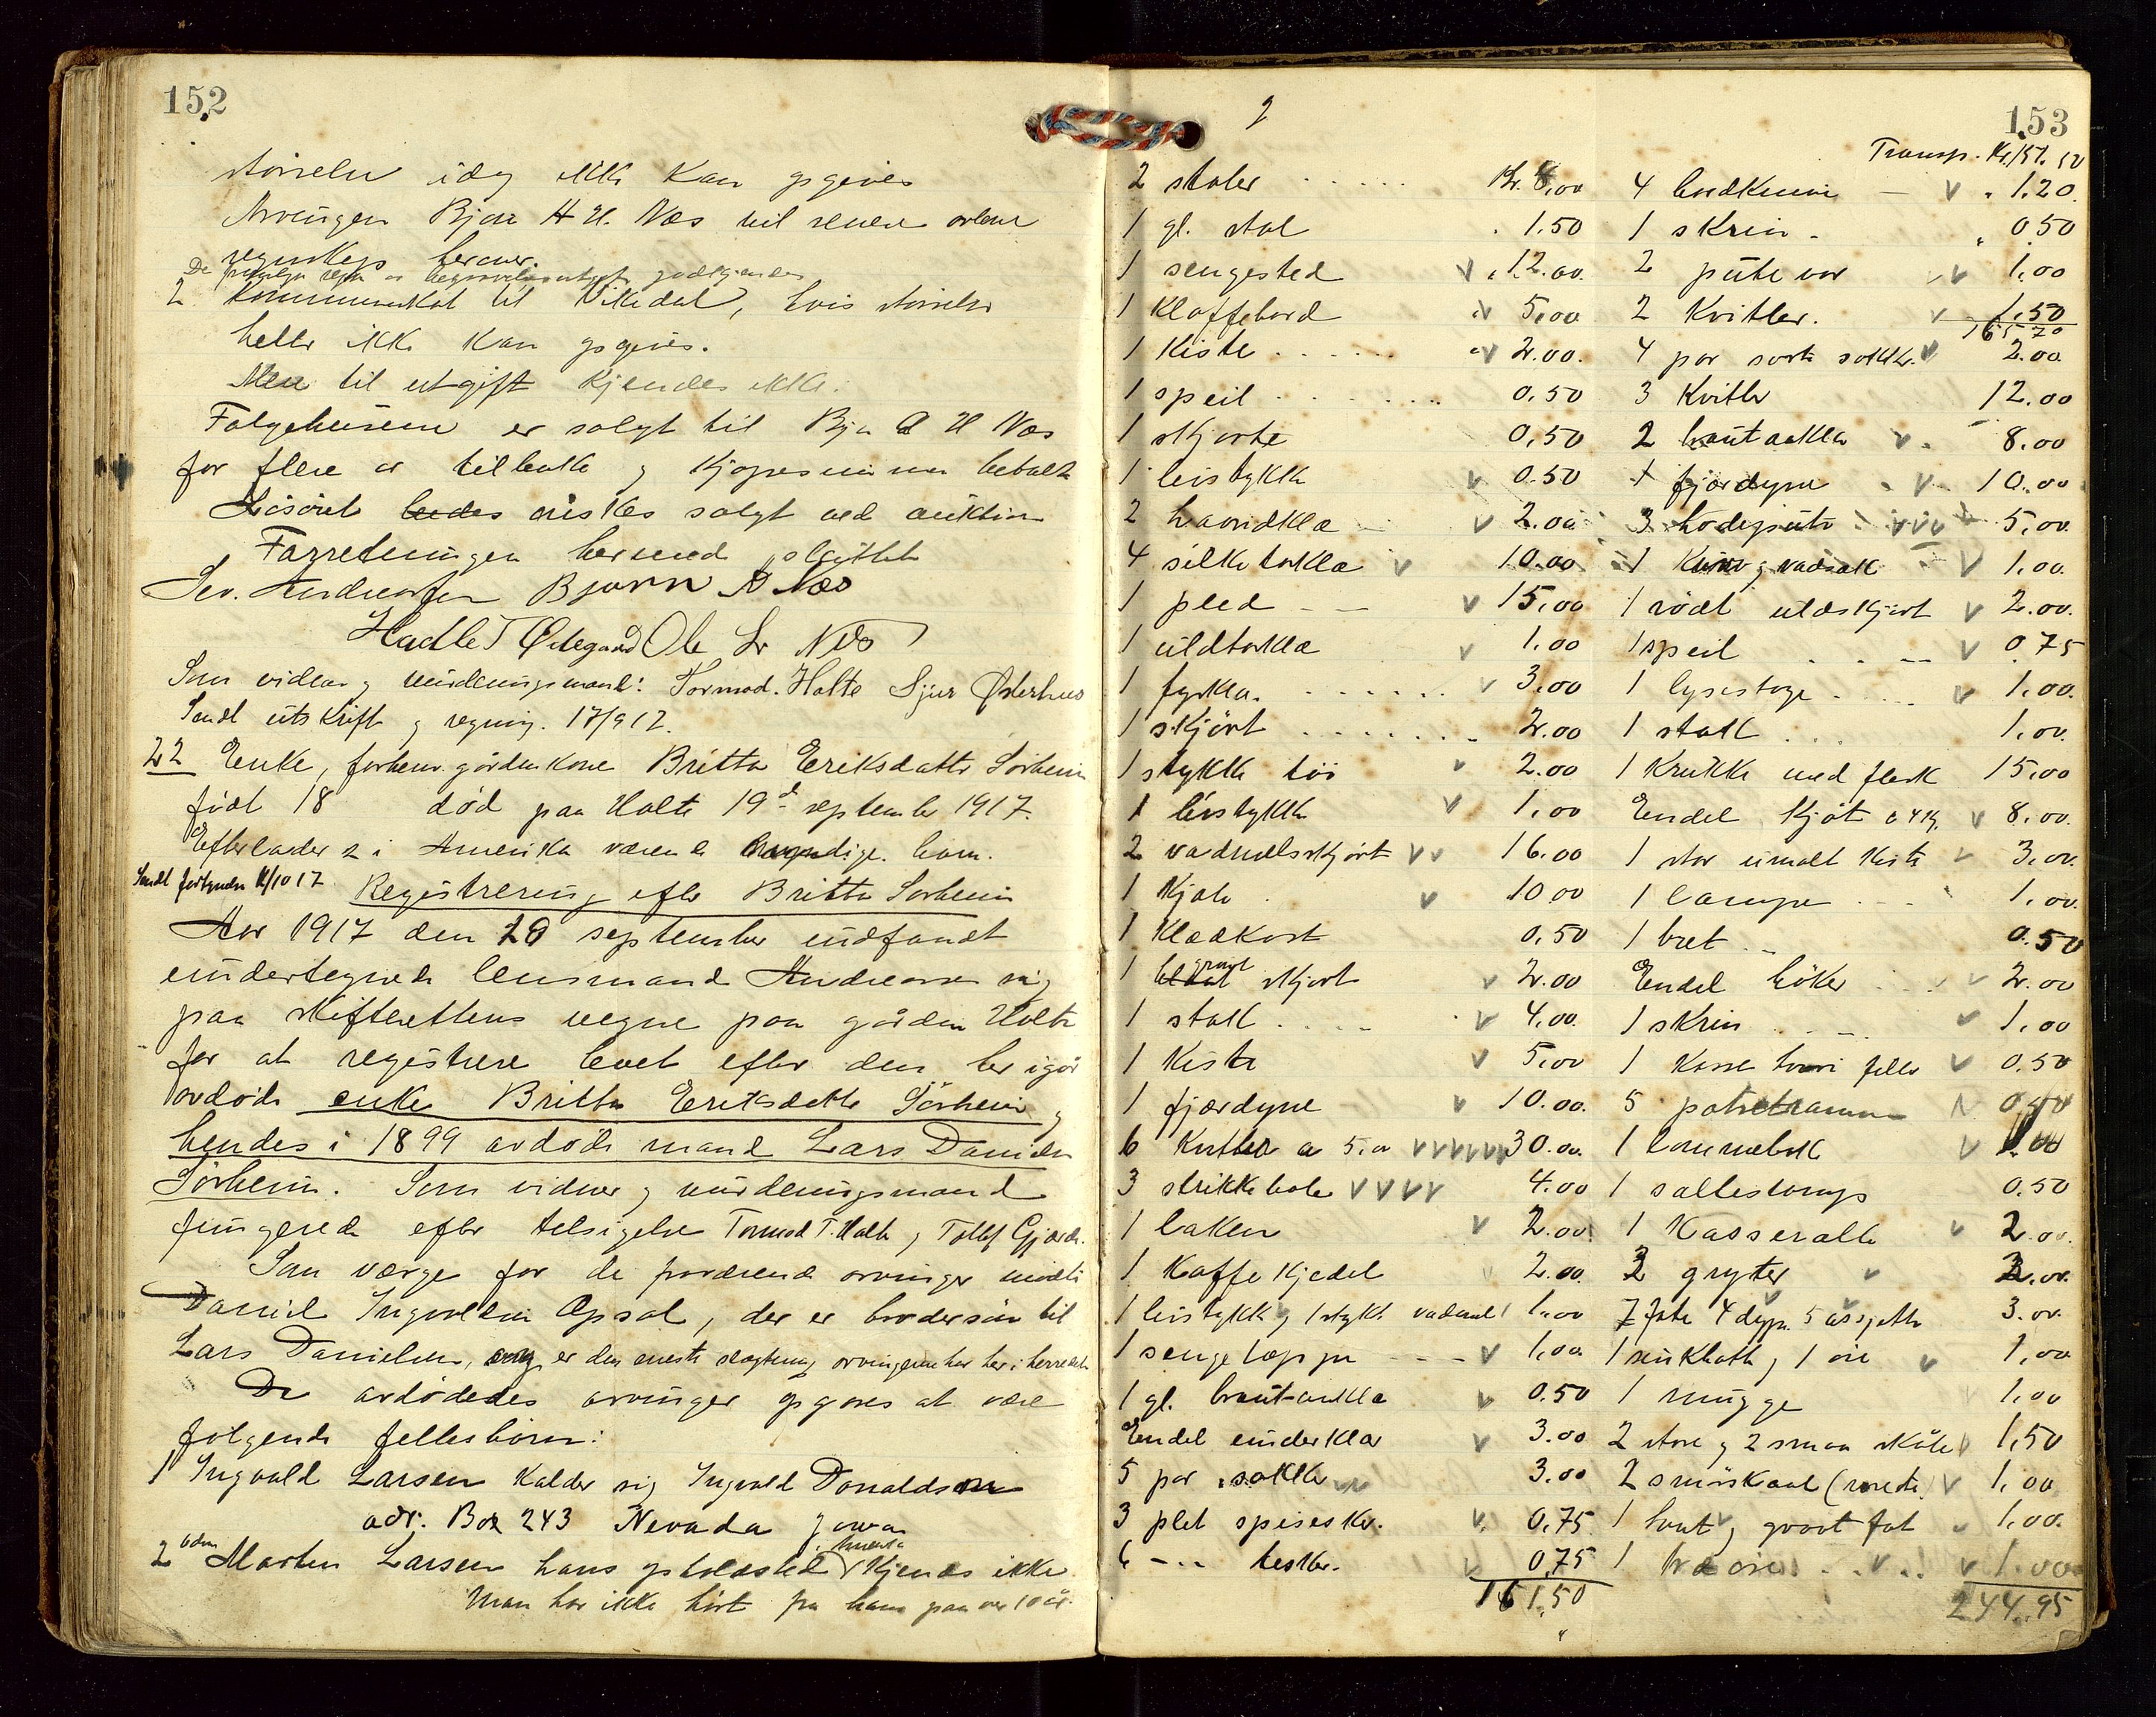 152
størrelse idag ikke kan opgives
Arvingen Bjør H. H. Næs vil senere avlevere
regnskap herover.
De
2 kommuneskat til Vikedal, hvis størrelse
heller ikke kan opgives.
Mere til utgift kjendes ikke.
Følgehusene er solgt til Bjør A H Næs
for flere år tilbake og kjøpesummen betalt
Løsøret ønskes solgt ved auktion
Forretningen hermed sluttet
Sev. Andreassen Bjørn A Næs
Hadle T Ødegaard Ole Sr Næs
Som vidner og vurderingsmænd: Tormod Holte Sjur Østerhus
Sendt utskrift og regning. 17/9 17.
22 Enke, forhenv. gårdmkone Britta Eriksdatter Sørheim
født 18 død paa Holte 19d september 1917.
Efterlader 2 i Amerika værende myndige barn.
Sendt fortegnelse 11/10 17 Registrering efter Britta Sørheim
Aar 1917 den 20 september indfandt
undertegnede lensmand Andreassen sig
paa skifterettens vegne paa gården Holte
for at registrere boet efter den her igår
avdøde enke Britta Eriksdatter Sørheim og
hendes i 1899 avdøde mand Lars Danielsen
Sørheim. Som vidner og vurderingsmænd
fungerede efter tilsigelse Tormod T. Holte og Tollef Gjærde.
Som værge for de fraværende arvinger møtte
Daniel Ingvaldsen Opsal, der er brodersøn til
Lars Danielsen, og er den eneste slægtning arvingerne har her i herredet
De avdødedes arvinger opgives at være
følgende fellesbörn:
1 Ingvald Larsen kalder sig Ingvald Donaldson
adr: Box 243 Nevada Jowa
Amerika
2 Morten Larsen hans opholdsted kjendes ikke
Man har ikke hørt fra ham paa over 10 år.
2
153
Transp. Kr. 161.50
2 stoler Kr. 8,00
1 gl. stol 1.50
1 sengested 12.00
1 Klaffebord 5,00
1 Kiste 2.00
1 speil 0,50
1 skjorte 0,50
1 livstykke 0.50
2 haandklæ 2.00
4 silketørklæ 10.00
1 pled 15,00
1 uldtørklæ 1.00
1 fyrklæ 3,00
1 skjørt 2.00
1 stykke töi 2.00
1 livstykke 1,00
2 vadmelsskjørt 16.00
1 Kjole 10 00
1 Klædkost 0,50
1 grønt skjørt 2.00
1 stol 4,00
1 Kiste 5,00
1 fjærdyne 10.00
6 Kvitler a 5,00 30.00
3 strikkhoter 4.00
1 laken 2.00
1 Kaffekjedel 2.00
1 livstykke og 1 stykke vadmel 1.00
1 sengetæppe 1,00
1 gl. brautaakla 0.50
Endel underklær 3.00
5 par sokker 3.00
3 plet spiseskr. 0,75
6 - - - teskr. 0,75
161,50
4 bordkniv 1.20
1 skrin 0.50
2 putevor 1.00
2 Kvitler. 1.50
165 70
4 par sorte sokker 2.00
3 Kvitler 12.00
2 brautaakla 8.00
1 fjærdyne 10.00
3 hodeputer 5,00
1 Kurv og vadsæk 1,00
1 rødt uldskjørt 2.00
1 speil 0.75
1 lysestage 1,00
1 stol 1,00
1 Krukke med flesk 15,00
Endel Kjøt 8,00
1 stor umalt kiste 3,00
1 lampe 1,00
1 bret 0.50
Endel bøker 2.00
1 skrin 1,00
1 0,50
5 potretramme 0,40
1 lommebok
1 0.50
1 Kasserolle 2.00
3 gryter
7 fate 4 dype 5 asjetter 3.00
1 1,00
1 mugge 1,00
2 store og 2 smaa skåler 1,50
2 smörskaal 1,00
1 fat 1,00
1 1.00
244.95